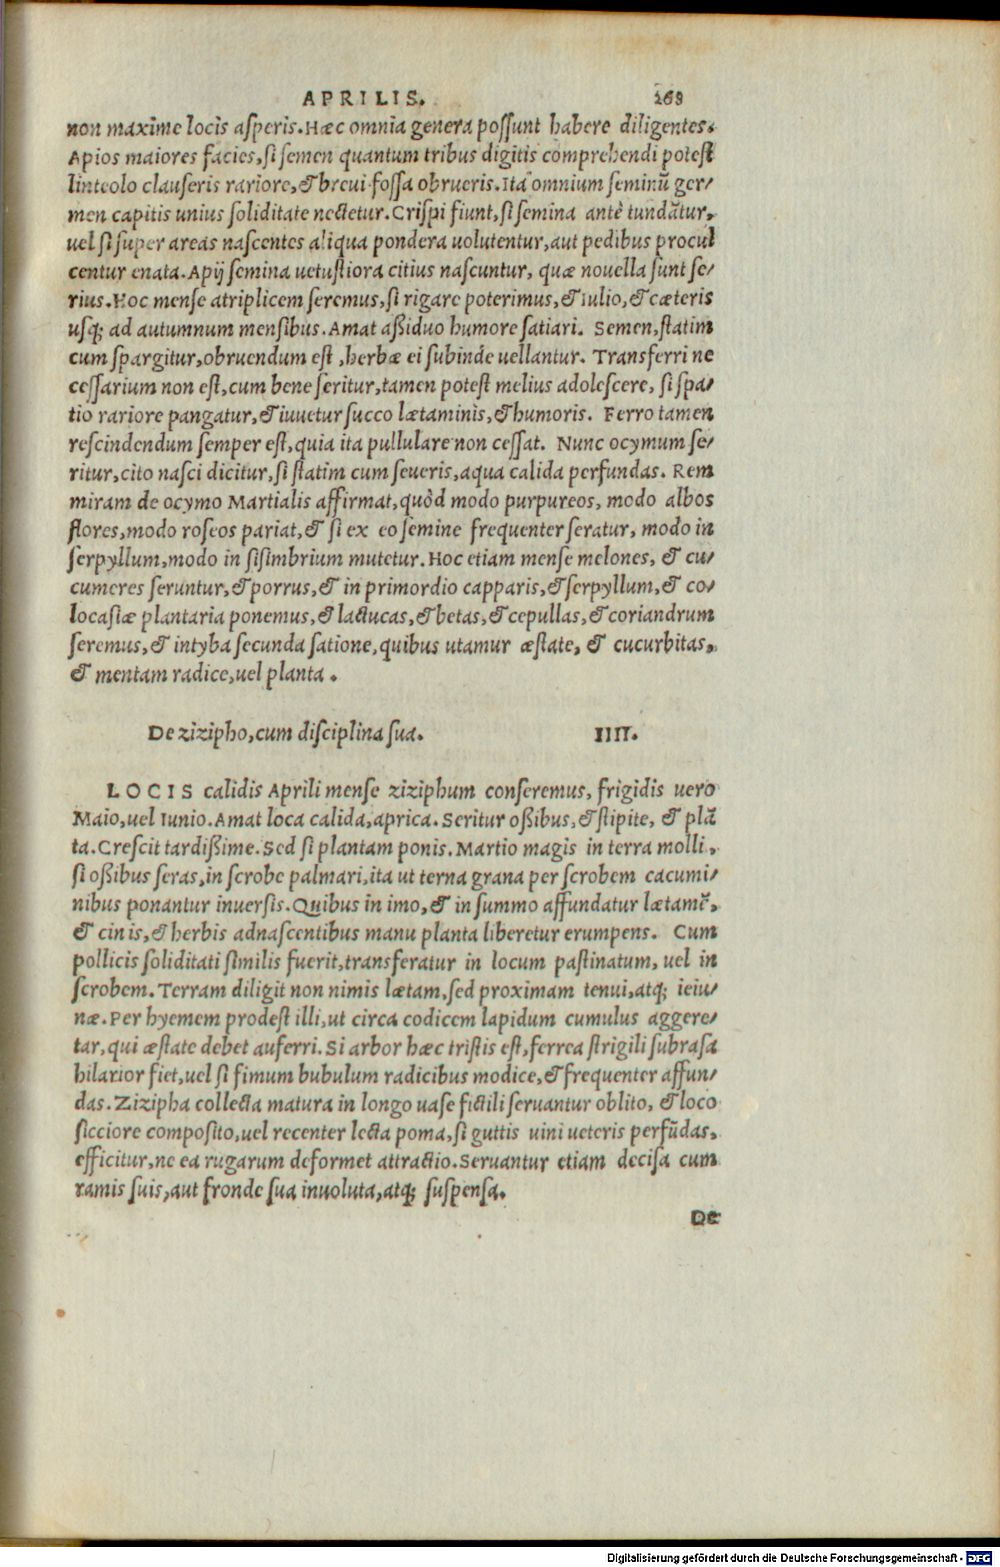 APRILIS. 269
non maxime locis asperis. Hæc omnia genera possunt habere diligentes.
Apios maiores facies, si semen quantum tribus digitis comprehendi potest
linteolo clauseris rariore, & breui fossa obrueris. Ita omnium seminū ger/
men capitis unius soliditate nectetur. Crispi fiunt, si semina antè tundātur,
uel si super areas nascentes aliqua pondera uolutentur, aut pedibus procul
centur enata. Apij semina uetustiora citius nascuntur, quæ nouella sunt se/
rius. Hoc mense atriplicem seremus, si rigare poterimus, & Iulio, & cæteris
usq; ad autumnum mensibus. Amat aßiduo humore satiari. Semen, statim
cum spargitur, obruendum est, herbæ ei subinde uellantur. Transferri ne
cessarium non est, cum bene seritur, tamen potest melius adolescere, si spa/
tio rariore pangatur, & iuuetur succo lætaminis, & humoris. Ferro tamen
rescindendum semper est, quia ita pullulare non cessat. Nunc ocymum se/
ritur, cito nasci dicitur, si statim cum seueris, aqua calida perfundas. Rem
miram de ocymo Martialis affirmat, quòd modo purpureos, modo albos
flores, modo roseos pariat, & si ex eo semine frequenter seratur, modo in
serpyllum, modo in sisimbrium mutetur. Hoc etiam mense melones, & cu/
cumeres seruntur, & porrus, & in primordio capparis, & serpyllum, & co/
locasiæ plantaria ponemus, & lactucas, & betas, & cepullas, & coriandrum
seremus, & intyba secunda satione, quibus utamur æstate, & cucurbitas,
& mentam radice, uel planta.
De zizipho, cum disciplina sua. IIII.
LOCIS calidis Aprili mense ziziphum conseremus, frigidis uero
Maio, uel Iunio. Amat loca calida, aprica. Seritur oßibus, & stipite, & plā
ta. Crescit tardißime. Sed si plantam ponis. Martio magis in terra molli,
si oßibus seras, in scrobe palmari, ita ut terna grana per scrobem cacumi/
nibus ponantur inuersis. Quibus in imo, & in summo affundatur lætamē,
& cinis, & herbis adnascentibus manu planta liberetur erumpens. Cum
pollicis soliditati similis fuerit, transferatur in locum pastinatum, uel in
scrobem. Terram diligit non nimis lætam, sed proximam tenui, atq; ieiu/
næ. Per hyemem prodest illi, ut circa codicem lapidum cumulus aggere/
tar, qui æstate debet auferri. Si arbor hæc tristis est, ferrea strigili subrasa
hilarior fiet, uel si fimum bubulum radicibus modice, & frequenter affun/
das. Zizipha collecta matura in longo uase fictili seruantur oblito, & loco
sicciore composito, uel recenter lecta poma, si guttis uini ueteris perfūdas,
efficitur, ne ea rugarum deformet attractio. Seruantur etiam decisa cum
ramis suis, aut fronde sua inuoluta, atq; suspensa.
De
Digitalisierung gefördert durch die Deutsche Forschungsgemeinschaft - DFG